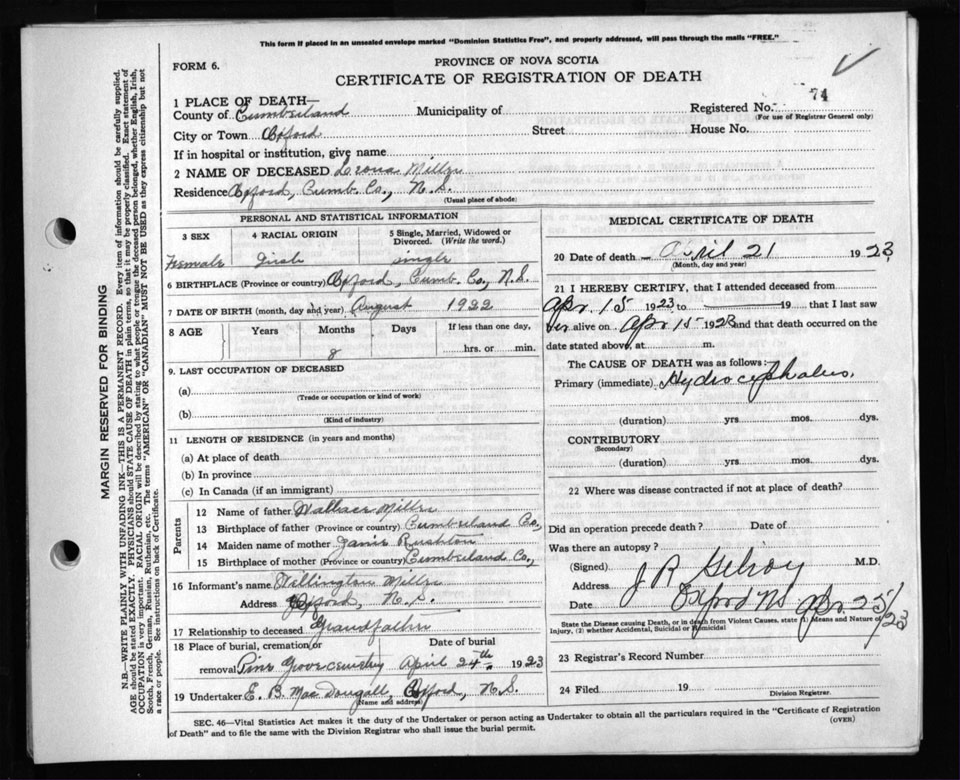 This form if placed in an unsealed envelope marked "Dominion Statistics Free", and properly addressed, will pass through the mails "FREE."
FORM 6.
PROVINCE OF NOVA SCOTIA
CERTIFICATE OF REGISTRATION OF DEATH
74
1 PLACE OF DEATH—
County of Cumberland Municipality of Registered No.
(For use of Registrar General only)
City or Town Oxford Street House No.
If in hospital or institution, give name
2 NAME OF DECEASED Leona Miller
Residence Oxford, Cumb. Co., N.S.
(Usual place of abode)
PERSONAL AND STATISTICAL INFORMATION
3 SEX 4 RACIAL ORIGIN 5 Single, Married, Widowed or Divorced. (Write the word.)
Female Irish single
6 BIRTHPLACE (Province or country) Oxford, Cumb. Co., N.S.
7 DATE OF BIRTH (month, day and year) August 1922
8 AGE Years Months Days If less than one day,
8 hrs. or min.
9. LAST OCCUPATION OF DECEASED
(a)
(Trade or occupation or kind of work)
(b)
(Kind of industry)
11 LENGTH OF RESIDENCE (in years and months)
(a) At place of death
(b) In province
(c) In Canada (if an immigrant)
Parents
12 Name of father Wallace Miller
13 Birthplace of father (Province or country) Cumberland Co.,
14 Maiden name of mother Janie Rushton
15 Birthplace of mother (Province or country) Cumberland Co.,
16 Informant's name Willington Miller
Address Oxford, N.S.
17 Relationship to deceased Grandfather
18 Place of burial, cremation or Date of burial
removal Pine Grove cemetry April 24th. 1923
19 Undertaker E. B. MacDougall, Oxford, N.S.
(Name and address)
MEDICAL CERTIFICATE OF DEATH
20 Date of death April 21 1923
(Month, day and year)
21 I HEREBY CERTIFY, that I attended deceased from
Apr. 15 1923 to 19 that I last saw
her alive on Apr 15 1923 and that death occurred on the
date stated above, at m.
The CAUSE OF DEATH was as follows:
Primary (immediate) Hydrocephalus.
(duration) yrs mos. dys.
CONTRIBUTORY
(Secondary)
(duration) yrs mos. dys.
22 Where was disease contracted if not at place of death?
Did an operation precede death? Date of
Was there an autopsy?
(Signed) J R Gilroy M.D.
Address Oxford NS
Date Apr. 25/23
State the Disease causing Death, or in death from Violent Causes, state (1) Means and Nature of Injury, (2) whether Accidental, Suicidal or Homicidal
23 Registrar's Record Number
24 Filed 19
Division Registrar.
SEC. 46—Vital Statistics Act makes it the duty of the Undertaker or person acting as Undertaker to obtain all the particulars required in the "Certificate of Registration
of Death" and to file the same with the Division Registrar who shall issue the burial permit.
(OVER)
MARGIN RESERVED FOR BINDING
N.B.—WRITE PLAINLY WITH UNFADING INK—THIS IS A PERMANENT RECORD. Every item of information should be carefully supplied.
AGE should be stated EXACTLY. PHYSICIANS should STATE CAUSE OF DEATH in plain terms, so that it may be properly classified. Exact statement of
OCCUPATION is very important. RACIAL ORIGIN will be described by stating to what people or tongue the deceased person belonged, whether English, Irish,
Scotch, French, German, Russian, Ruthenian, etc. The terms "AMERICAN" OR "CANADIAN" MUST NOT BE USED as they express citizenship but not
a race or people. See instructions on back of Certificate.